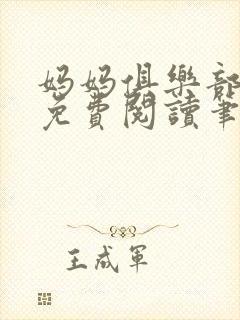 媽媽俱樂部
免費閱讀筆
王成軍